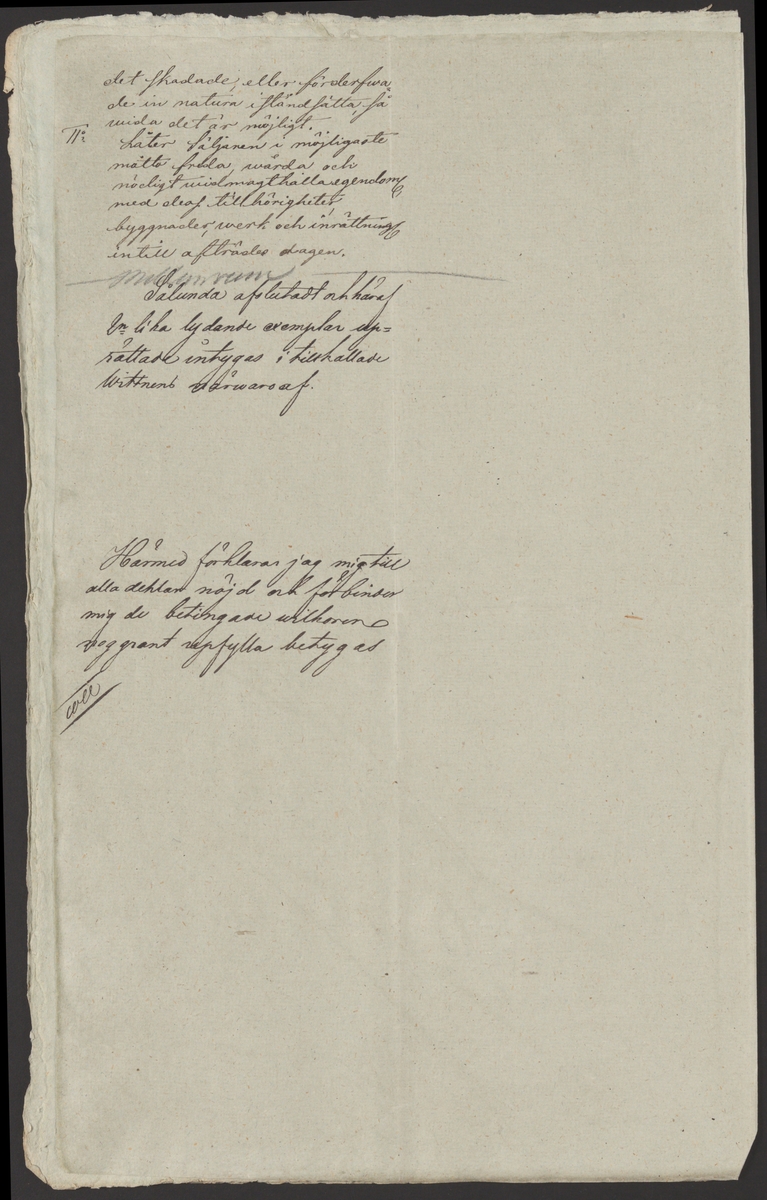 det skadade, eller förderfwa-
de in natura iståndsätta, så
wida det är möjligt.
11o: Låter Säljaren i möjligaste
måtto freda, wårda och
nödigt widmagthålla egendomen
med deaf tillhörigheter,
byggnader, werk och inrättningar
intill afträdes dagen.
Sålunda afslutadt och häraf
lika lydande exemplar up=
rättade intygas i tillkallade
Wittnens närwaro af.
Härmed förklarar jag mig till
alla dehlar nöjd och förbinder
mig de betingade wilkoren
noggrant upfylla betygas